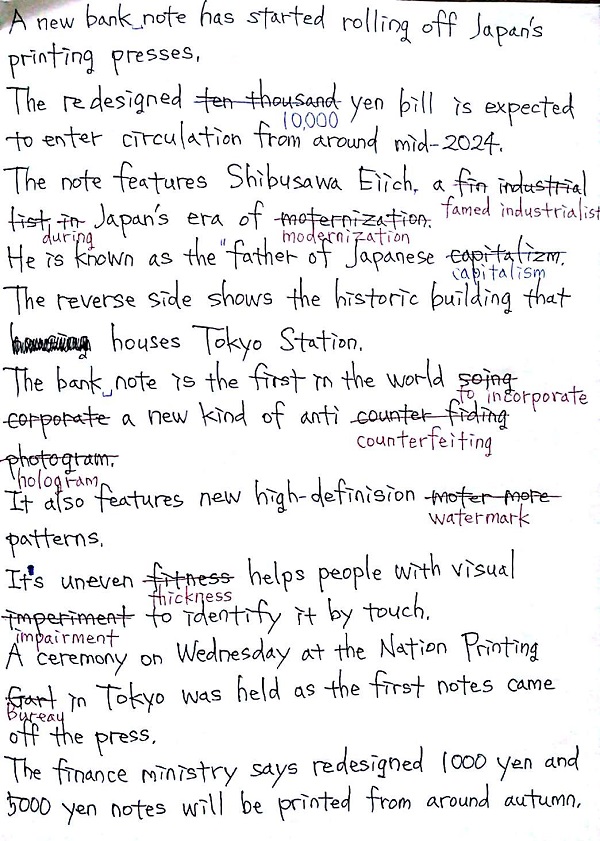 A new bank note has started rolling off Japan's
printing presses.
The redesigned ten thousand yen bill is expected
10,000
to enter circulation from around mid-2024.
The note features Shibusawa Eiich, a fin industrial
famed industrialist
tist in Japan's era of moternization.
during modernization
He is known as the "father of Japanese capitalizm.
capitalism
The reverse side shows the historic building that
houses Tokyo Station.
The bank note is the first in the world soing
to incorporate
corporate a new kind of anti counter fiding
counterfeiting
photogram.
hologram
It also features new high-definision moter more
watermark
patterns.
It's uneven fitness helps people with visual
thickness
imperiment to identify it by touch.
impairment
A ceremony on Wednesday at the Nation Printing
Gart in Tokyo was held as the first notes came
Bureay
off the press.
The finance ministry says redesigned 1000 yen and
5000 yen notes will be printed from around autumn.